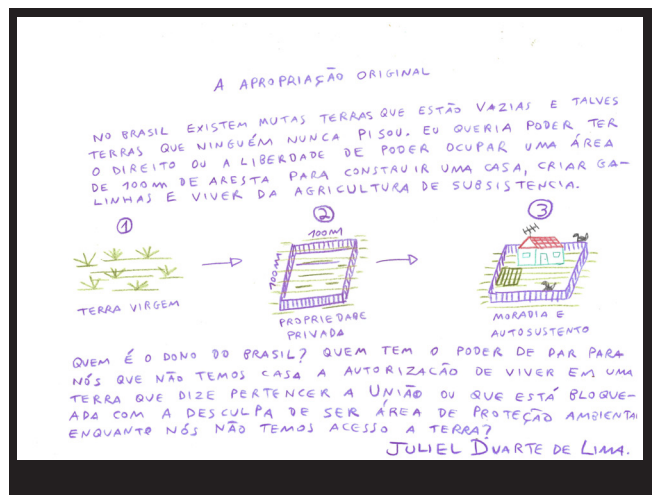 A APROPRIAÇÃO ORIGINAL
NO BRASIL EXISTEM MUTAS TERRAS QUE ESTÃO VAZIAS E TALVES
TERRAS QUE NINGUÉM NUNCA PISOU. EU QUERIA PODER TER
O DIREITO OU A LIBERDADE DE PODER OCUPAR UMA ÁREA
DE 100m DE ARESTA PARA CONSTRUIR UMA CASA, CRIAR GA-
LINHAS E VIVER DA AGRICULTURA DE SUBSISTENCIA.
1 2 3
100m
100m
TERRA VIRGEM
PROPRIEDADE
PRIVADA
MORADIA E
AUTOSUSTENTO
QUEM É O DONO DO BRASIL? QUEM TEM O PODER DE DAR PARA
NÓS QUE NÃO TEMOS CASA A AUTORIZAÇÃO DE VIVER EM UMA
TERRA QUE DIZE PERTENCER A UNIÃO OU QUE ESTÁ BLOQUE-
ADA COM A DESCULPA DE SER ÁREA DE PROTEÇÃO AMBIENTA
ENQUANTO NÓS NÃO TEMOS ACESSO A TERRA?
JULIEL DUARTE DE LIMA.